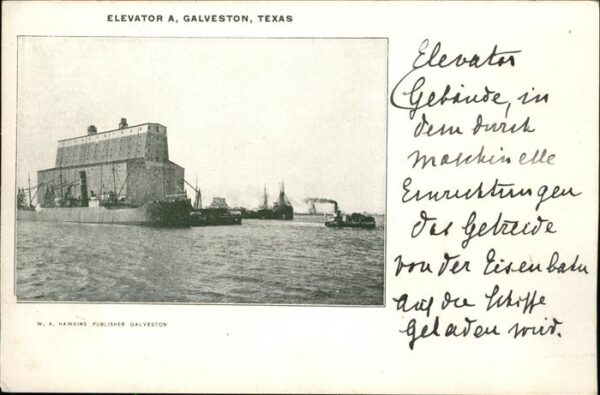 ELEVATOR A, GALVESTON, TEXAS
Elevator
Gebäude, in
dem durch
maschinelle
Einrichtungen
das Getreide
von der Eisenbahn
auf die Schiffe
geladen wird.
W. A. HAWKINS PUBLISHER GALVESTON